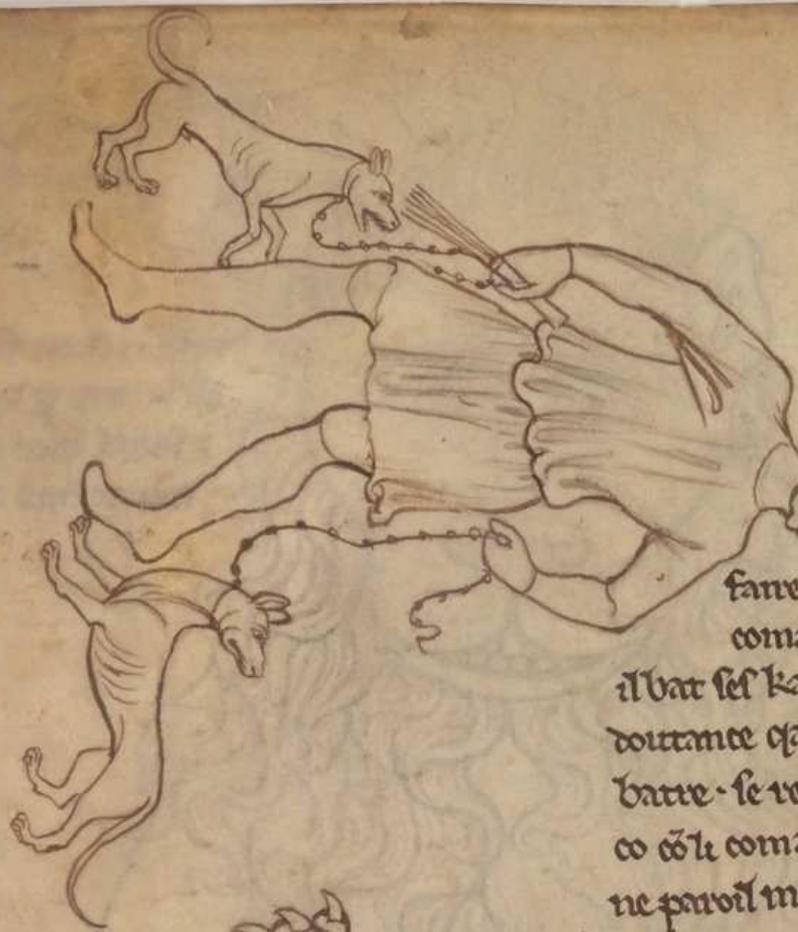 faire
coma
il bat ses ka
doutance q
batre · se re
co cõ li coma
ne paroil m